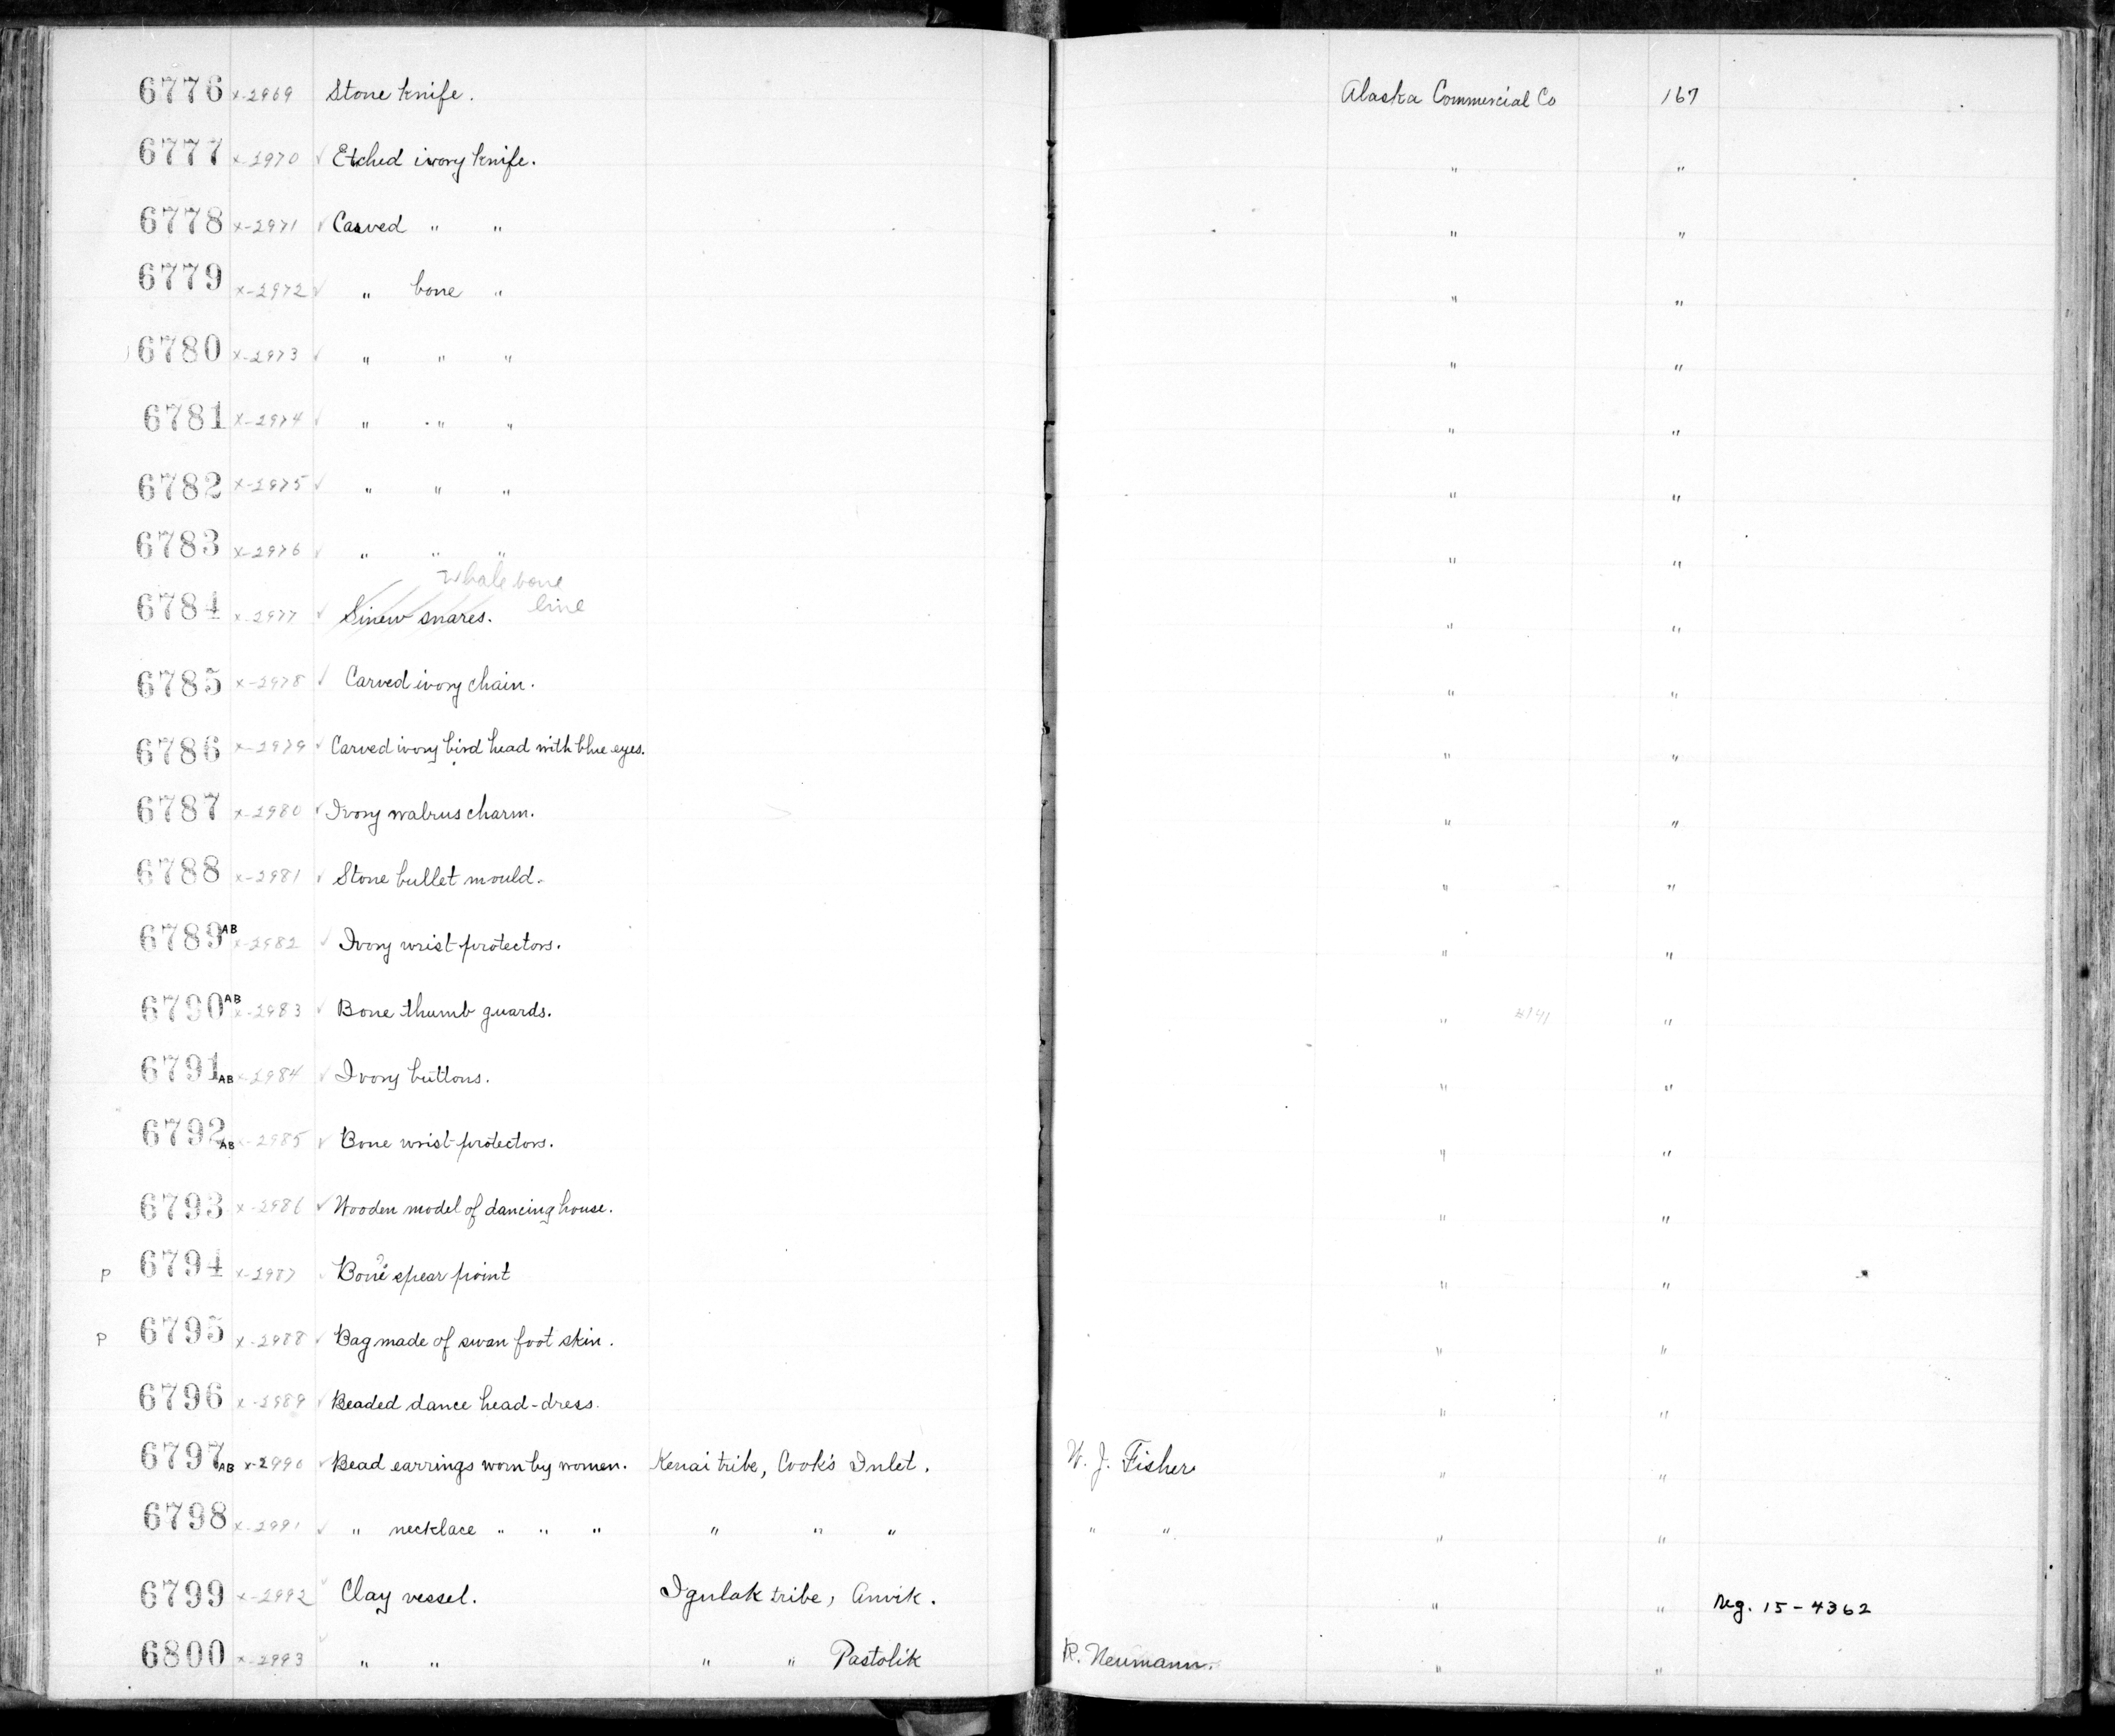 6776 x-2969 Stone knife. Alaska Commercial Co 167
6777 x-2970 ✓ Etched ivory knife. " "
6778 x-2971 ✓ Carved " " " "
6779 x-2972 ✓ " bone " " "
6780 x-2973 ✓ " " " " "
6781 x-2974 ✓ " " " " "
6782 x-2975 ✓ " " " " "
6783 x-2976 ✓ " " " " "
whale bone
line
6784 x-2977 ✓ Sinew snares. " "
6785 x-2978 ✓ Carved ivory chain. " "
6786 x-2979 ✓ Carved ivory bird head with blue eyes. " "
6787 x-2980 ✓ Ivory walrus charm. " "
6788 x-2981 ✓ Stone bullet mould. " "
6789 AB x-2982 ✓ Ivory wrist-protectors. " "
6790 AB x-2983 ✓ Bone thumb guards. " "
6791 AB x-2984 ✓ Ivory buttons. " "
6792 AB x-2985 ✓ Bone wrist-protectors. " "
6793 x-2986 ✓ Wooden model of dancing house. " "
P 6794 x-2987 ✓ Bone ? spear point " "
P 6795 x-2988 ✓ Bag made of swan foot skin. " "
6796 x-2989 ✓ Beaded dance head-dress. " "
6797 AB x-2990 ✓ Bead earrings worn by women. Kenai tribe, Cook's Inlet. W. J. Fisher " "
6798 x-2991 ✓ " necklace " " " " " " " " " "
6799 x-2992 ✓ Clay vessel. Igulak tribe, Anvik. " " Neg. 15-4362
6800 x-2993 ✓ " " " " Pastolik R. Neumann. " "